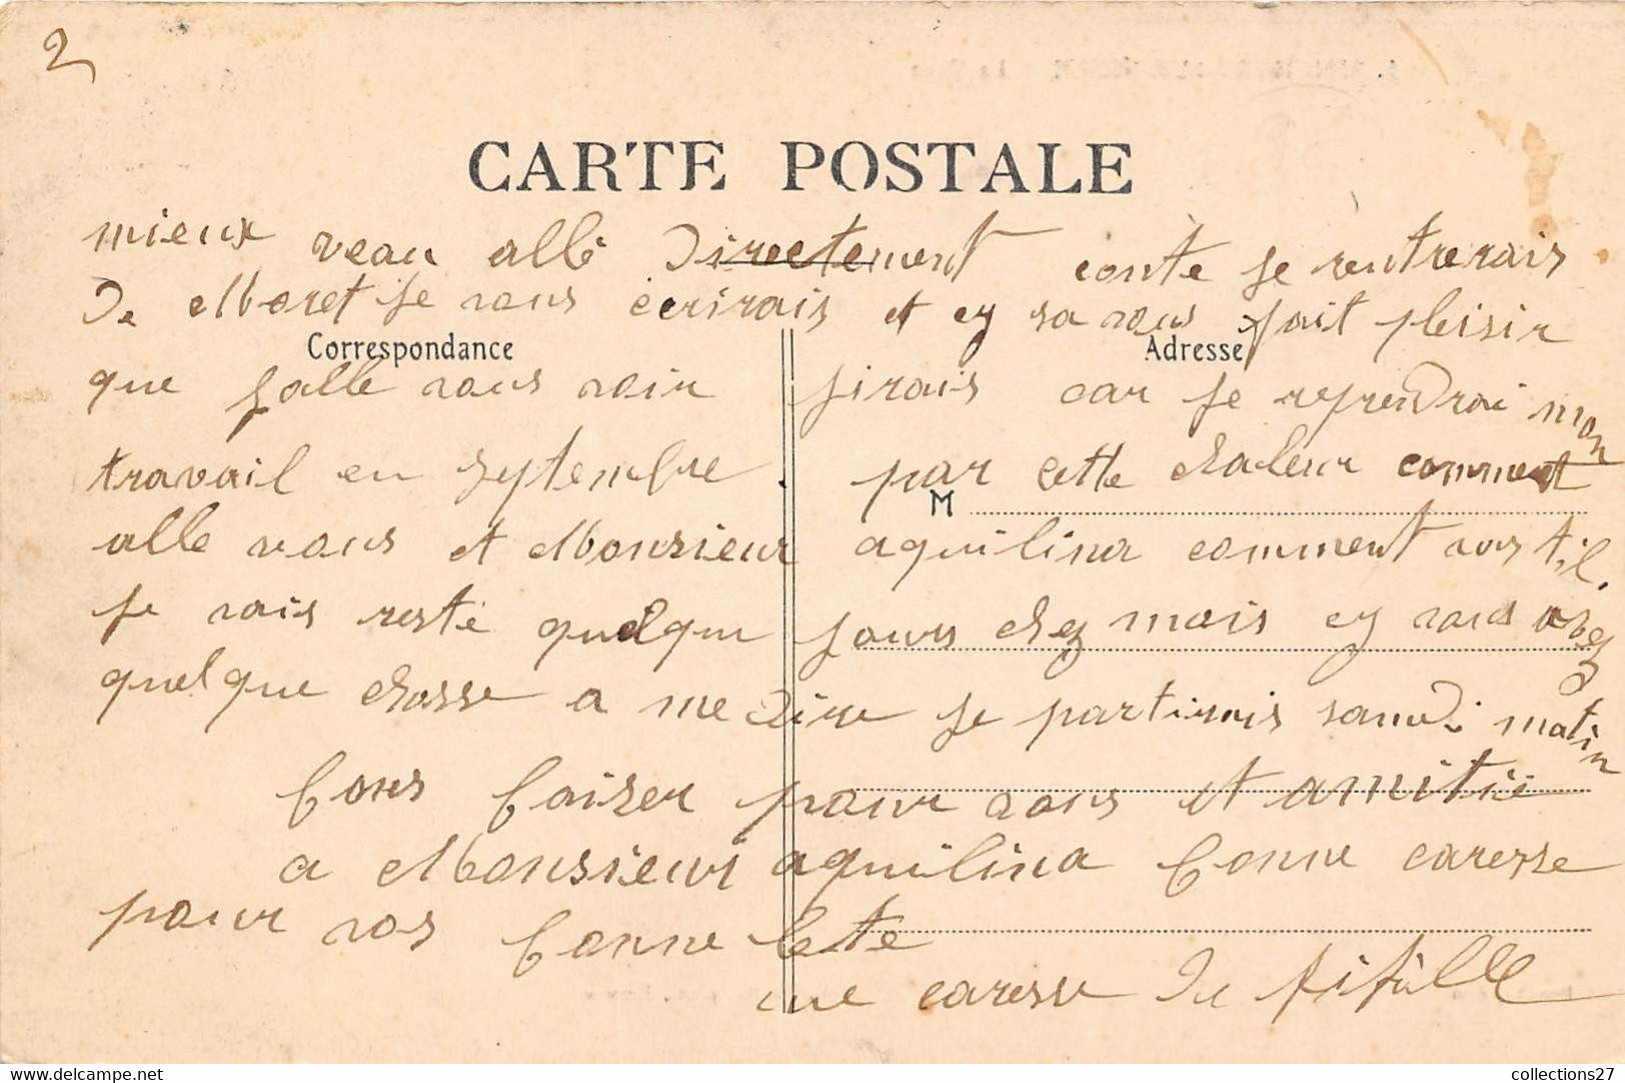 2
CARTE POSTALE
mieux veau allé Directement conte je rentrerais
De Moret je vous ecrirais et cy sa vous fait pleisir
Correspondance Adresse
que jalle vous voir jirais car je reprendrai mon
travail en septembre. par cette chaleur comment
M
alle vous et Monsieur aquilina comment vos t,il.
je vais resté quelque jours chez mois cy vous avez
quelque chosse a me dire je partirais samdi matin
bons baiser pour vous et amitié
a Monsieur aquilina bonne caresse
pour vos bonne bete
une caresse De fifille
collections27